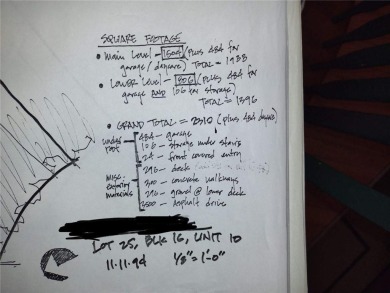 SQUARE FOOTAGE
• Main Level - 1504 (plus 484 for
garage/daycare) TOTAL = 1988
• Lower Level - 806 (plus 484 for
garage AND 106 for storage)
TOTAL = 1396
• GRAND TOTAL = 2310 (plus 484 daycare)
under roof
484 - garage
106 - storage under stairs
24 - front covered entry
296 - deck
misc. exterior materials
300 - concrete walkways
296 - gravel @ lower deck
2500 - asphalt drive
LOT 25, BLK 16, UNIT 10
11.11.94 1/8" = 1'-0"